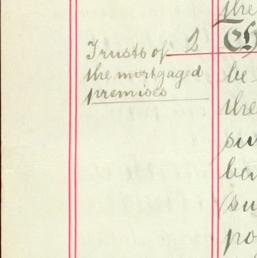 the
Trusts of 2 Th
the mortgaged be
premises the
su
ben
(su
po